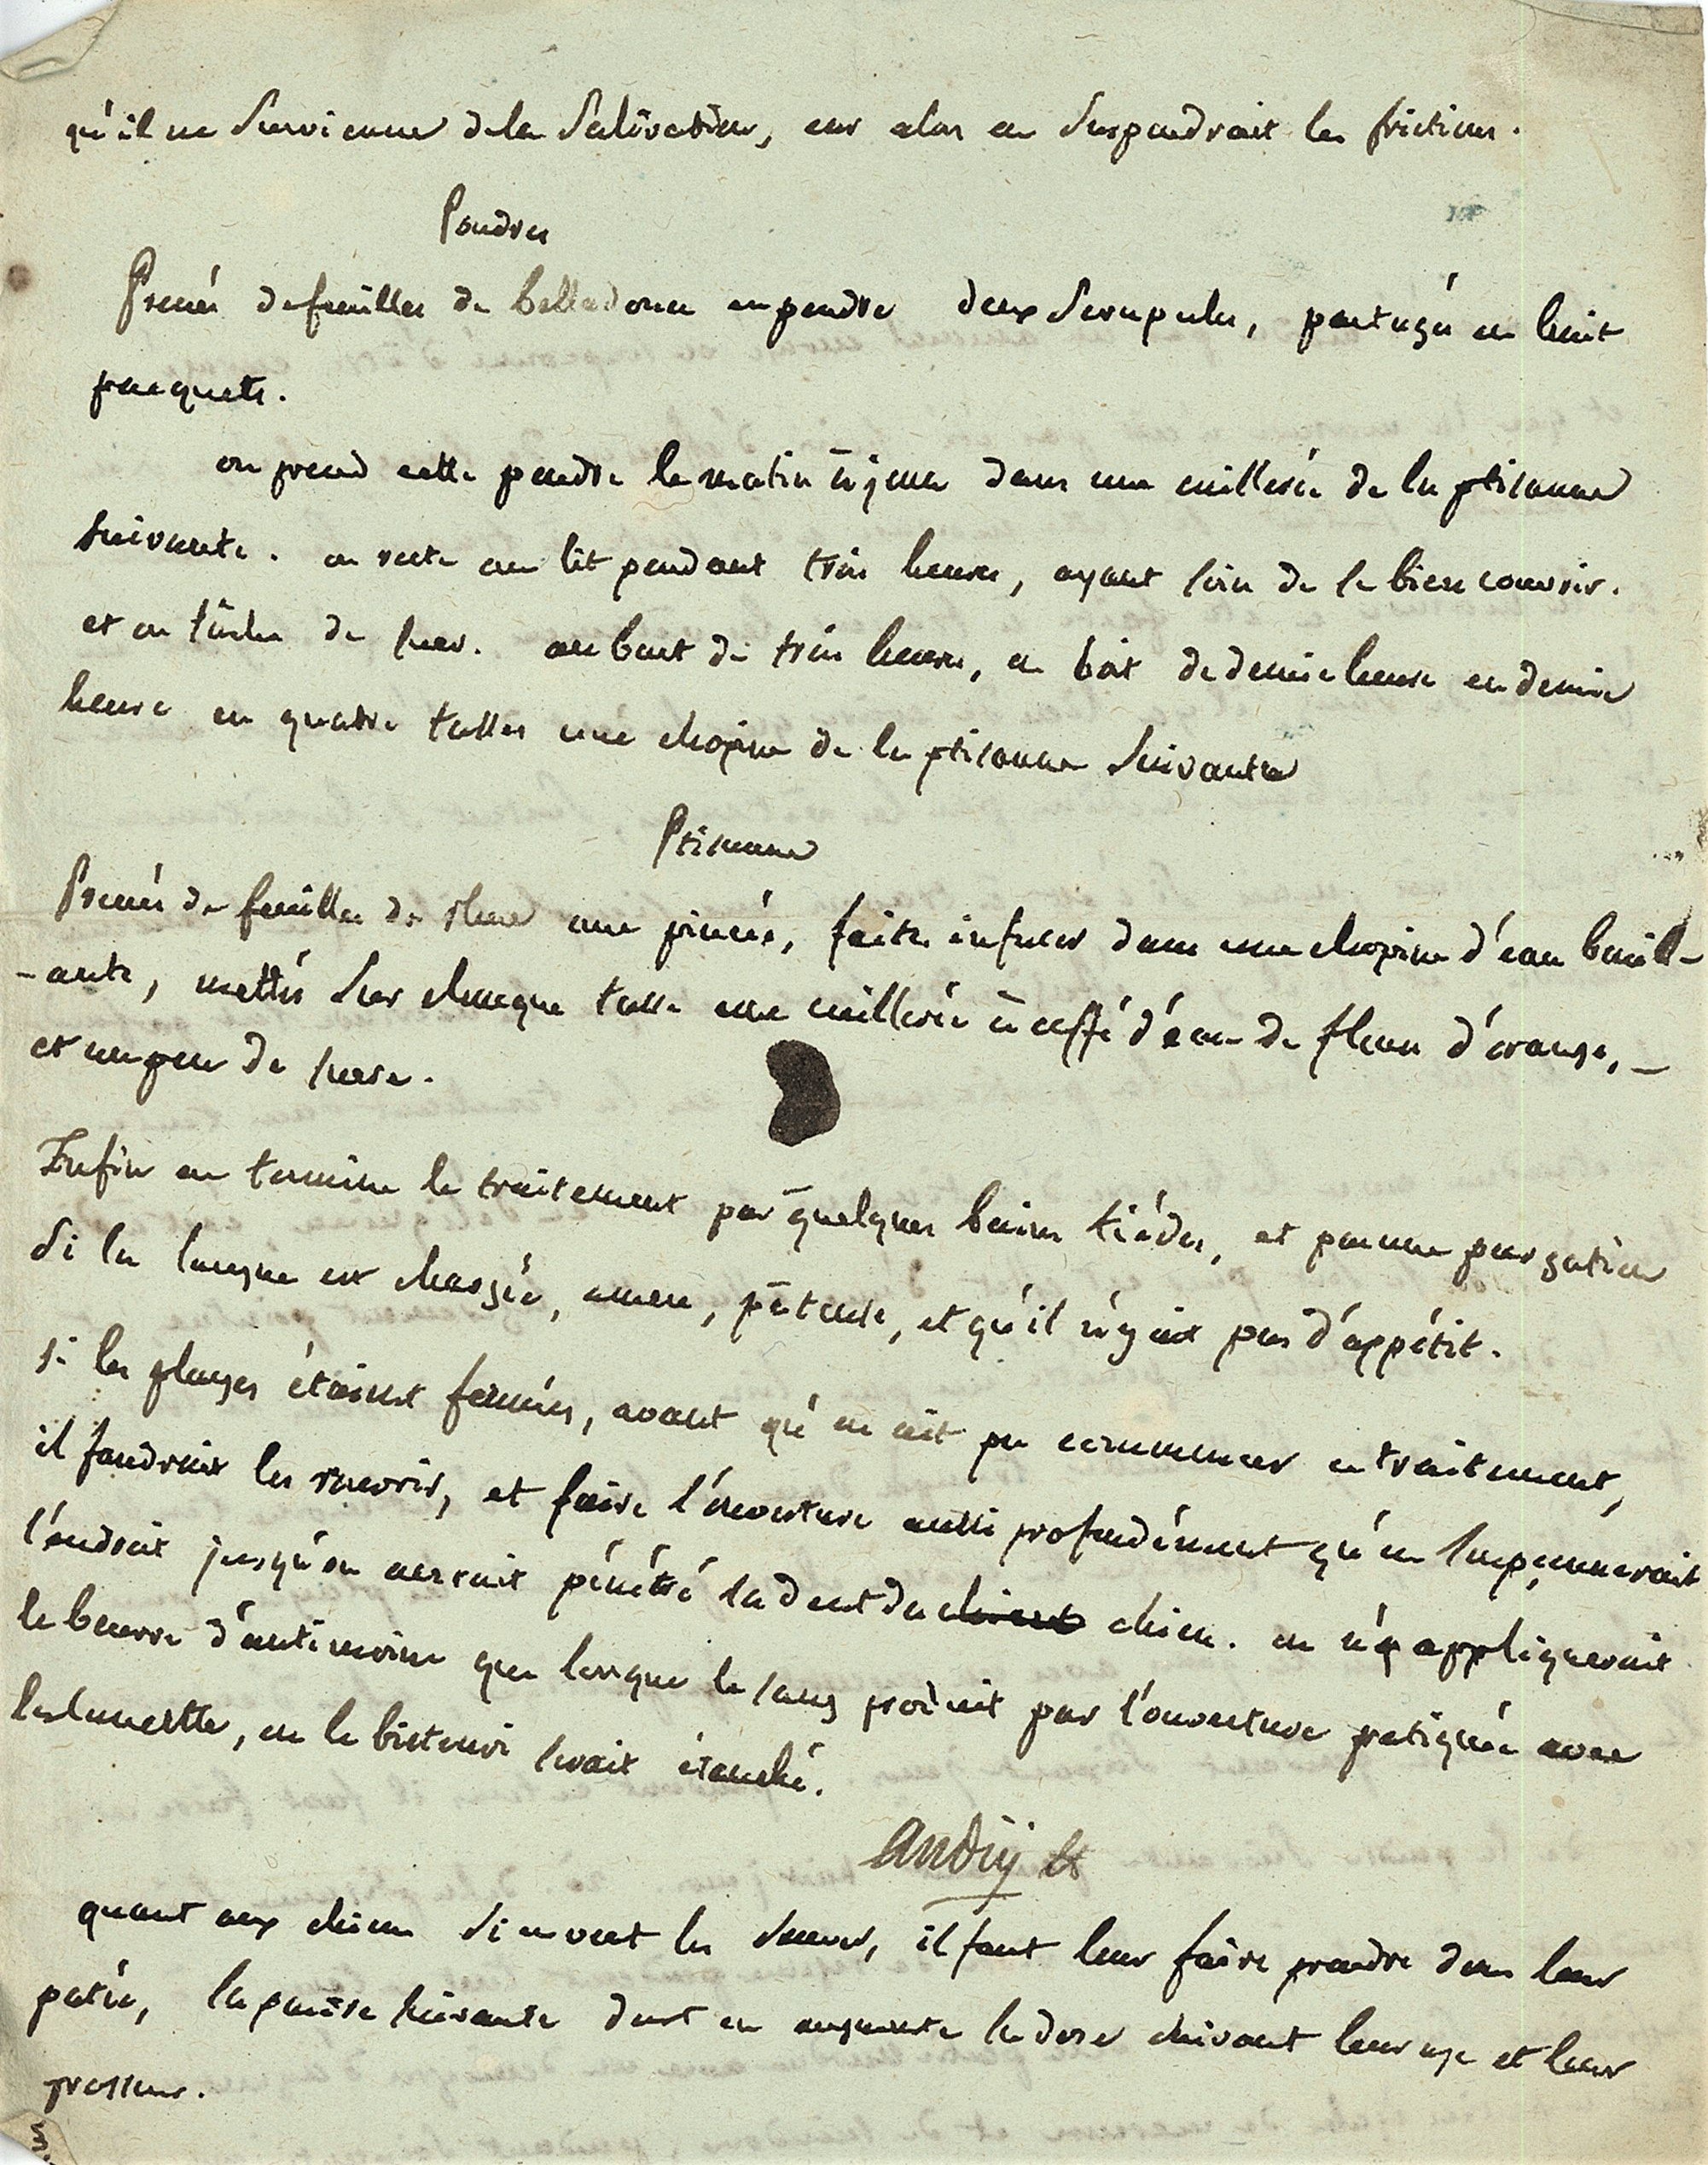 qu'il ne survienne de la salivation, car alors on suspendrait les frictions.
Poudres
Prenés de feuilles de belladone en poudre deux scrupules, partagés en huit
pacquets.
on prend cette poudre le matin à jeun dans une cuillerée de la ptisanne
suivante. on reste au lit pendant trois heures, ayant soin de se bien couvrir.
et on tâche de suer. au bout de trois heures, on boit de demie heure en demie
heure en quatre tasses une chopine de la ptisanne suivante
Ptisanne
Prenés de feuilles de une pincée, faites infuser dans une chopine d'eau bouil-
-ante, mettés sur chaque tasse une cuillerée à caffé d'eau de fleur d'orange, -
et un peu de sucre.
Enfin on termine le traitement par quelques bains tiédes, et par une purgation
si la langue est chargée, amere, pâteuse, et qu'il n'y ait pas d'appétit.
si les playes étaient fermées, avant qu'on ait pu commencer ce traitement,
il faudrait les rouvrir, et faire l'ouverture aussi profondément qu'on soupçonnerait
l'endroit jusqu'où aurait pénétré la dent du chient chien. on n'y appliquerait
le beurre d'antimoine que lorsque le sang produit par l'ouverture pratiquée avec
la lancette, ou le bistouri serait étanché.
andry
quant aux chiens si on veut les sauver, il faut leur faire prendre dans leur
patée, la poudre suivante dont on augmente la dose suivant leur age et leur
grosseur.